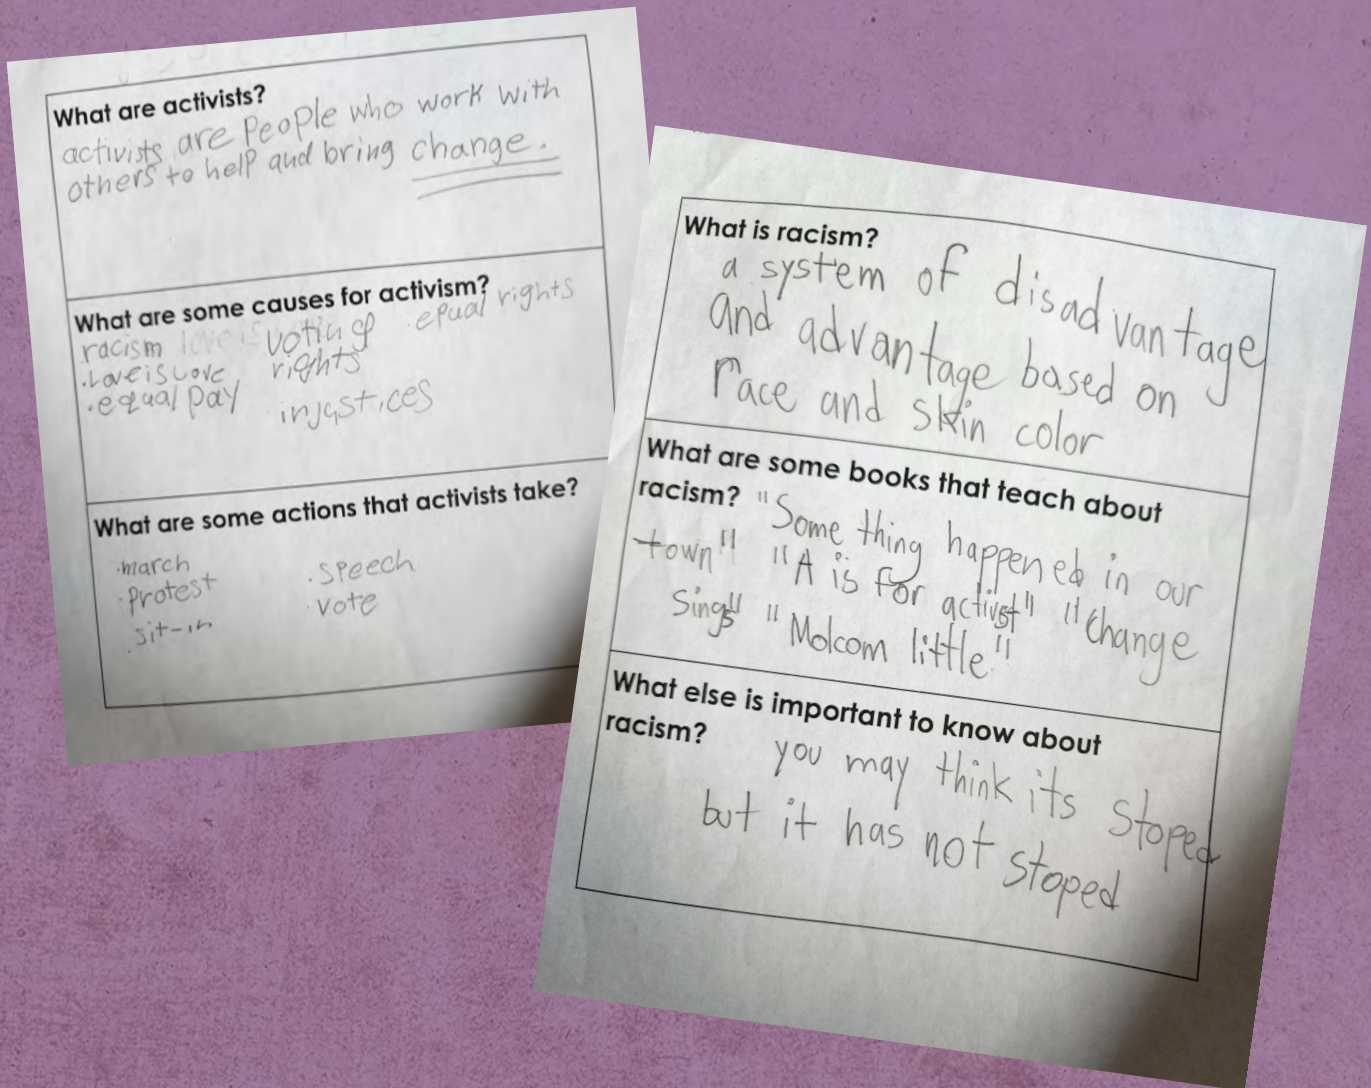 What are activists?
activists are People who work with
others to help and bring change.
What are some causes for activism?
racism love is voting equal rights
.Love is Love rights
.equal pay injustices
What are some actions that activists take?
.march .speech
.Protest .vote
.sit-in
What is racism?
a system of disadvantage
and advantage based on
race and skin color
What are some books that teach about
racism? "Some thing happened in our
town" "A is for activst" "Change
Sings" "Molcom little"
What else is important to know about
racism? you may think its stoped
but it has not stoped